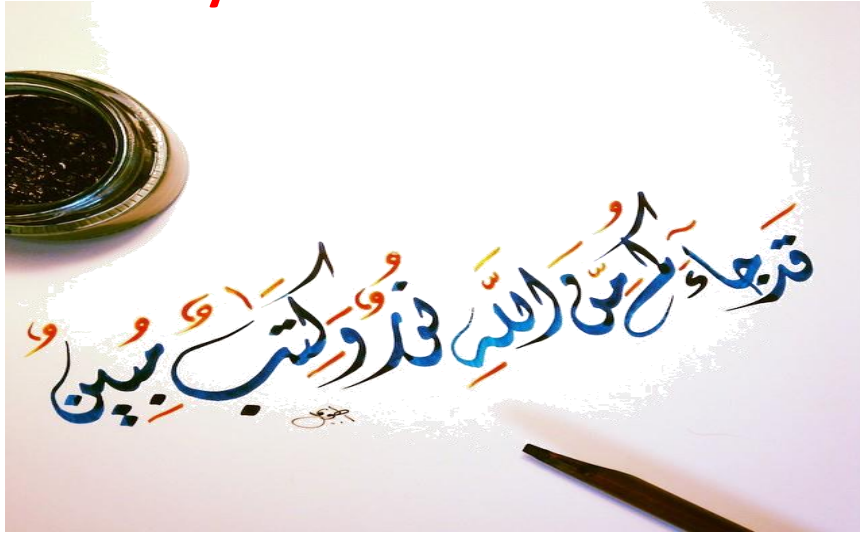 قَد جَاءَكُم مِّنَ اللَّهِ نُورٌ وَكِتَٰبٌ مُبِينٌ